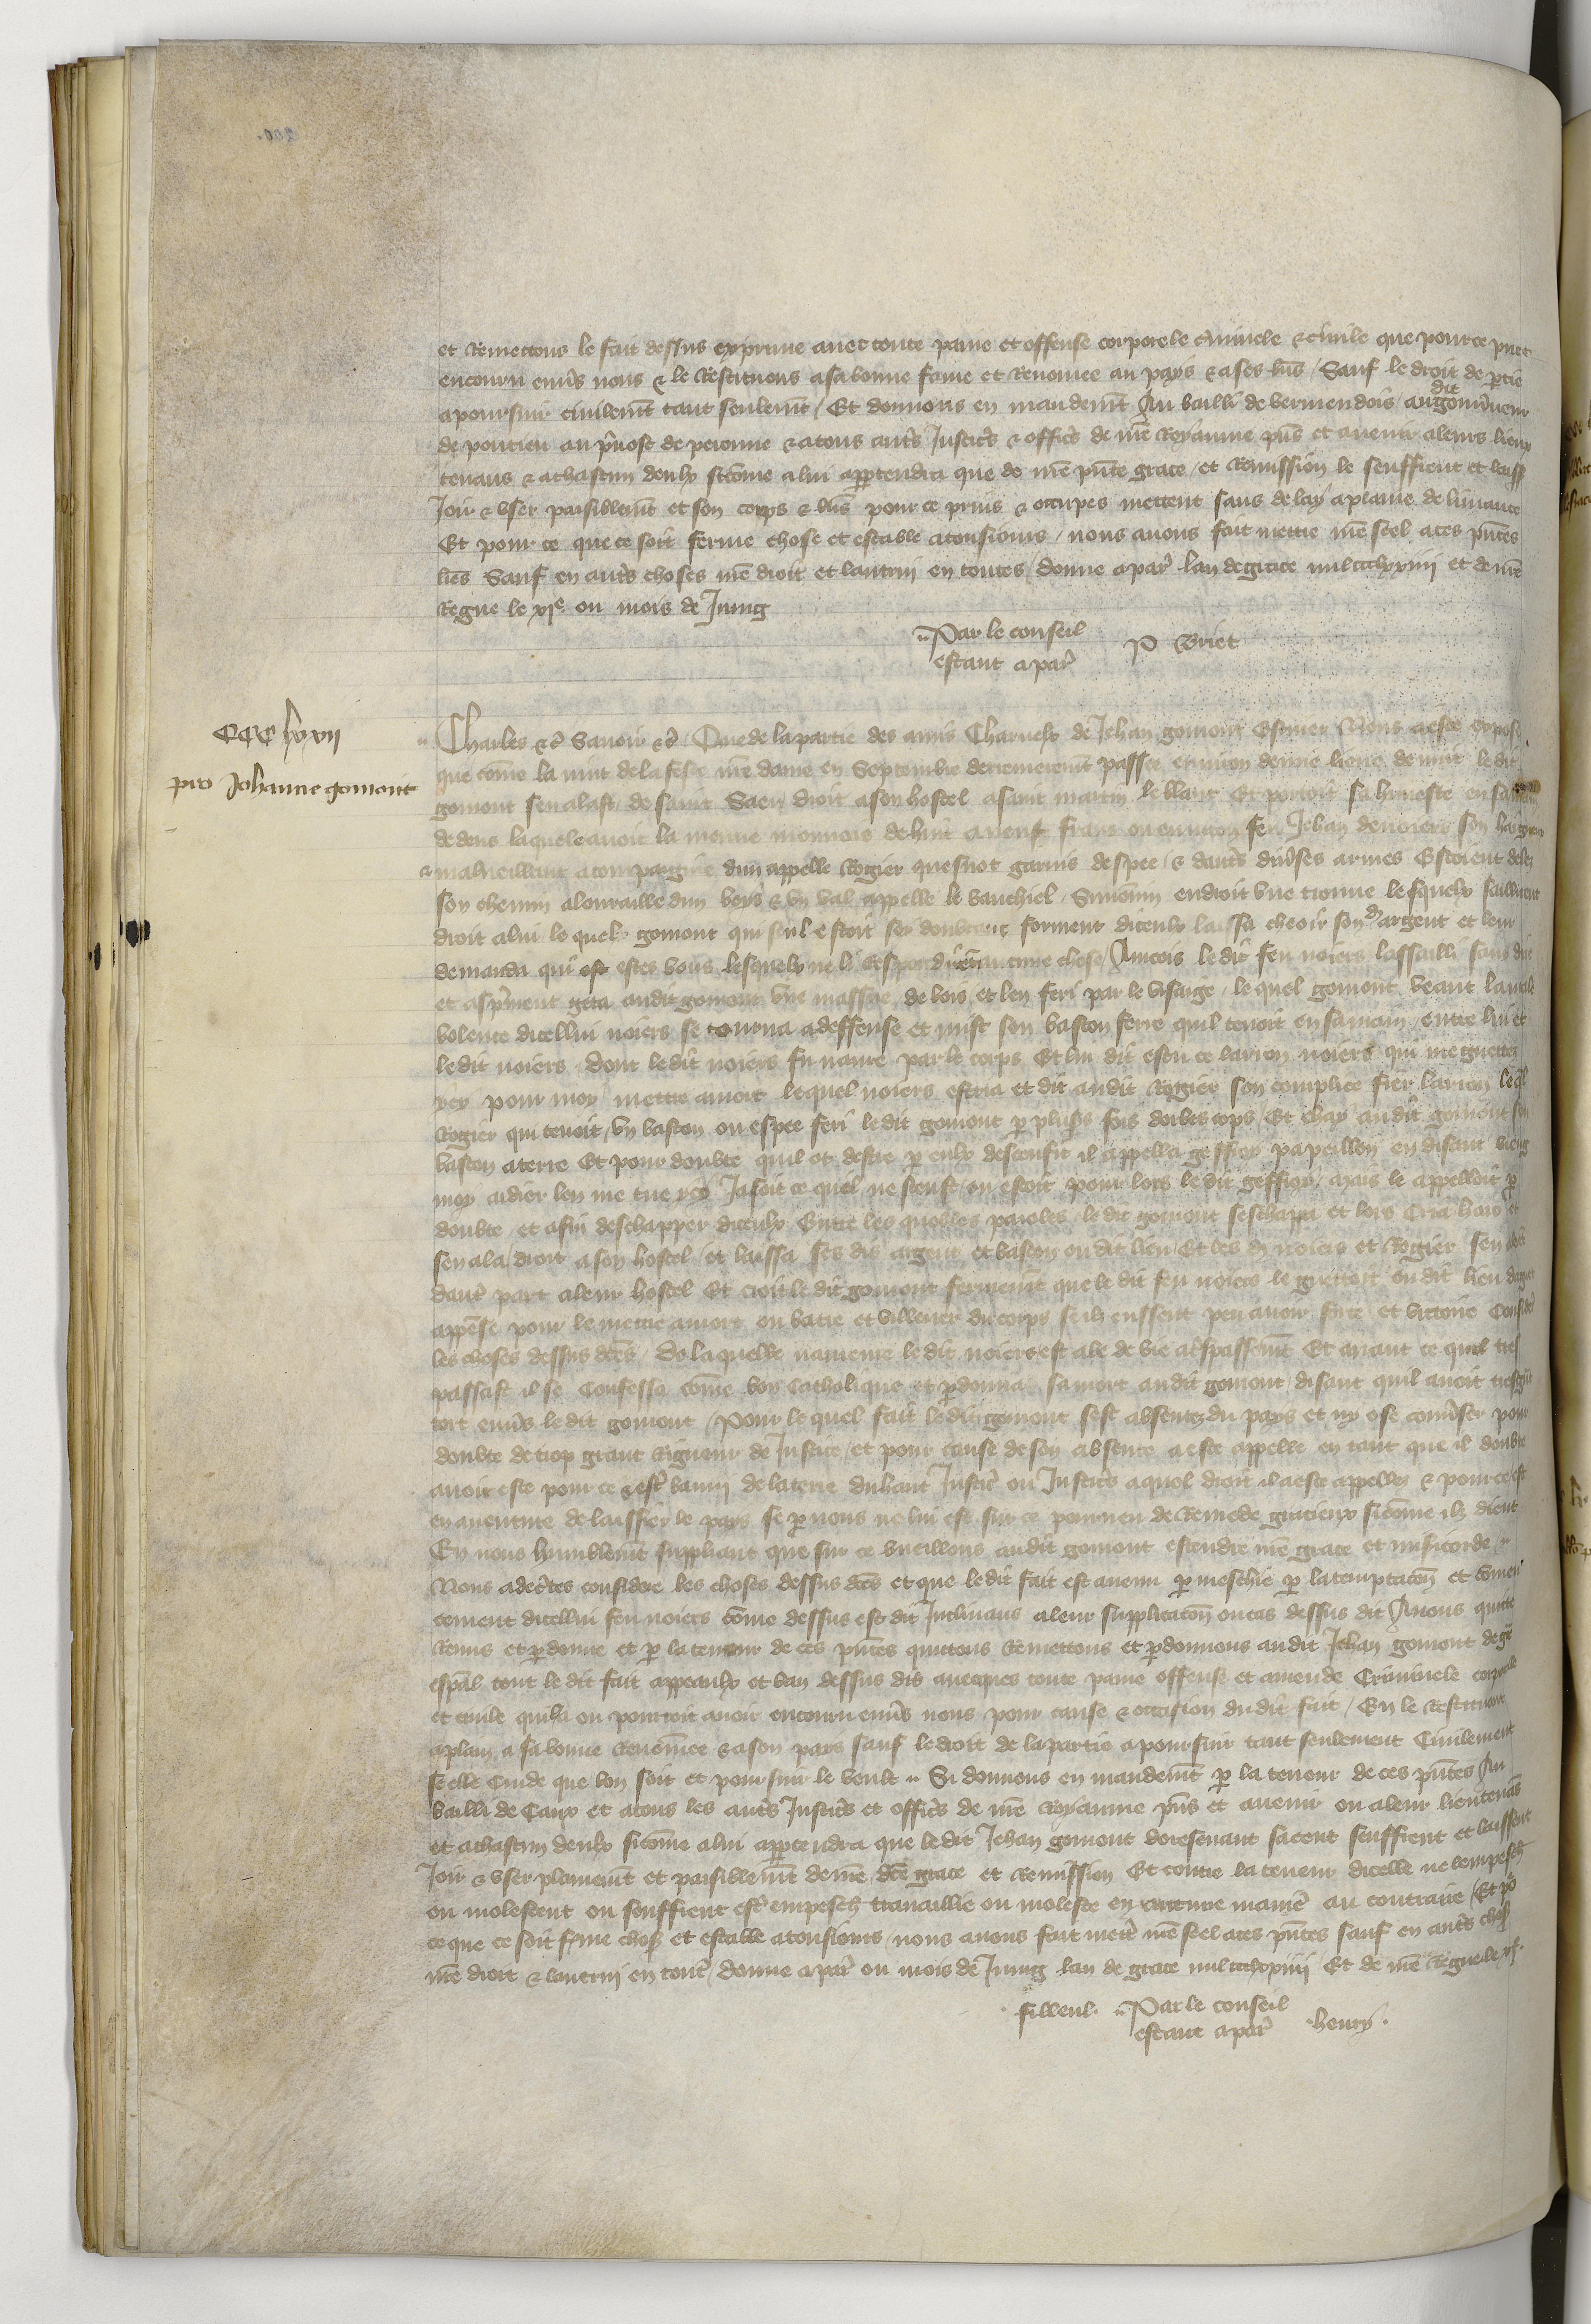 et Remettons le fait dessus exprime avec toute paine et offense corporele criminele & civile que pour ce puet
encouru envs nous & le Restituons a sa bonne fame et Renomee au pays & a ses bns / Sauf le droit de ptie
a poursuir civilemt tant seulemt / Et donnons en mandemt Au bailli de vermendois / au dit gouvneur
de pontieu au pvost de peronne & a tous autrs Justicrs & officrs de nre Royaume pns et avenir a leurs lieux
tenans & a chascun deulx si come a lui apptendra que de nre pnte grace et Remission le seuffrent et laiss
Joir & user paisiblemt et son corps & bns pour ce prins & occupes mettent sans delay a plaine delivrance
Et pour ce que ce soit ferme chose et estable a tousjours / nous avons fait mettre nre seel a ces pntes
lres Sauf en autrs choses nre droit et lautrui en toutes / donne a par lan de grace mil ccclxxiiii et de nre
Regne le xie ou mois de Juing
Par le conseil
estant a par P Briet
CCC lxxvii
pro Johanne gomont
Charles &c Savoir &c Que de la partie des amis Charnelx de Jehan gomont Esmer Nous a este expose
que come la nuit de la feste nre dame en Septembre derrenieremt passee environ demie lieue de nuit le dit
gomont sen alast de saint Saen droit a son hostel a saint martin le blanc Et portoit sa hrneste en sa main
dedens laquele avoit la menue monnoie de huit a neuf frans ou environ feu Jehan de noiers son hayneux
& malveillant acompaigne dun appelle Rogier quesnot garnis despee & dautrs divses armes Estoient deles
son chemin a louraille dun boys & un val appelle le vauchiel Simonnin endroit une tronne lesquelx saillirent
droit a lui lequel gomont qui seul estoit soy doubtant forment diceulx laissa cheoir son dt argent et leur
demanda qui est estes vous lesquelx ne li Respondirent aucune chose / Aincois le dit feu noiers lassailli sans dire
et asprment geta audit gomont une massue de bois et len feri par le visaige lequel gomont veant la male
volente dicellui noiers se tourna a deffense et mist son baston ferre quil tenoit en sa main entre lui et
le dit noiers dont le dit noiers fu navre par le corps Et lui dit esta ce larron noiers qui me guettes
icy pour moy mettre a mort lequel noiers escria et dit audit Rogier son complice fier larron leql
Rogier qui tenoit un baston ou espee feri le dit gomont p plusrs fois dorbes cops Et chay audit gomont son
baston a terre Et pour doubte quil ot destre p eulx desconfit il appella geffroy papeillon en disant vieng
moy aidier len me tue icy Jasoit ce quil ne sceust ou estoit pour lors le dit geffroy mais le appelloit p
doubte et afin deschapper diceulx Entre les quelles paroles le dit gomont seschapa et lors Cria haro et
sen ala droit a son hostel et laissa ses dis argent et baston ou dit lieu Et les di noiers et Rogier sen alerent
dautr part a leur hostel Et croit le dit gomont fermemt que le dit feu noiers le guettoit ou dit lieu daguet
appense pour le mettre a mort ou batre et villener du corps se ilz eussent peu avoir force et victoire Consider
les choses dessus dces / De laquelle navreure le dit noiers est ale de vie a trspassemt Et avant ce quil tres
passast il se Confessa come bon Catholique et pdonna sa mort audit gomont disant quil avoit tresgrt
tort envs le dit gomont / Pour le quel fait le dit gomont sest absentez du pays et ny ose convser pour
doubte de trop grant Rigueur de Justice et pour cause de son absence a este appelle en tant que il doubte
avoir este pour ce & estr banni de la terre du haut Justicr ou Justicrs a quoi droit il a este appellez & pour ce est
en aventure de laissier le pays se p nous ne lui est sur ce pourveu de Remede gracieux si come ilz dient
En nous humblemt suppliant que sur ce vueillons audit gomont estendre nre grace et misicorde
Nous adcrtes considere les choses dessus dces et que le dit fait est avenu p meschie p la temptacon et comen
cement dicellui feu noiers come dessus est dit Inclinans a leur supplicacon ou cas dessus dit Avons quitte
Remis et pdonne et p la teneur de ces pntes quittons Remettons et pdonnons audit Jehan gomont de gre
espal tout le dit fait appeaulx et ban dessus dis avecques toute paine offense et amende Criminele corporele
et civile quil a ou pourroit avoir encouru envs nous pour cause & occasion du dit fait / En le Restituant
a plain a sa bonne Renomee & a son pays sauf le droit de la partie a poursuir tant seulement Civilement
se elle Cuide que bon soit et poursuir le veult Si donnons en mandemt p la teneur de ces pntes Au
bailli de Caux et a tous les autrs Justicrs et officrs de nre Royaume pns et avenir ou a leur lieutenans
et a chascun deulx si come a lui apptendra que le dit Jehan gomont doresenavant facent seuffrent et laissent
Joir & user plainemt et paisiblemt de nre dce grace et Remission Et contre la teneur dicelle ne lempesch
ou molestent ou seuffrent estr empesch travaillie ou moleste en aucune manie au contraire / Et po
ce que ce soit ferme chos et estable a tousjours nous avons fait mettr nre seel a ces pntes sauf en autrs chos
nre droit & lautrui en toutr / donne a par ou mois de Juing lan de grace mil ccclxxiiii Et de nre Regne le xie
filleul. Par le conseil
estant a par .henry.